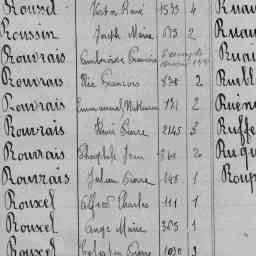 Rouxel Victor René 1533 4 Ruau
Roussin Joseph Marie 573 2 Ruau
Rouvrais Ambroise Francois Ruau
Rouvrais Pie Francois 838 2 Ruell
Rouvrais Emmanuel Mathurin 181 2
Rouvrais René Pierre 2145 3 Ruffe
Rouvrais Théophile Jean 2 Ruqu
Rouvrais Julien Pierre 148 1 Roup
Rouxel Alfred Charles 111 1
Rouxel Ange Marie 365 1
Rouxel Pierre